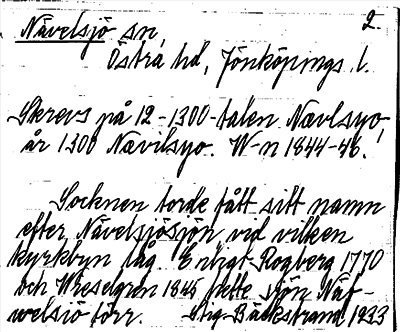 2.
Nävelsjö sn,
Östra hd, Jönköpings l.
Skrevs på 12-1300-talen Navlsyo,
år 1300 Navilsyo. W-n 1844-46.
Socknen torde fått sitt namn
efter Nävelsjösjön vid vilken
kyrkbyn låg. Enligt Rogberg 1770
och Wieselgren 1845 hette sjön Näf-
welsjö förr. Stig Bäckstrand 1933